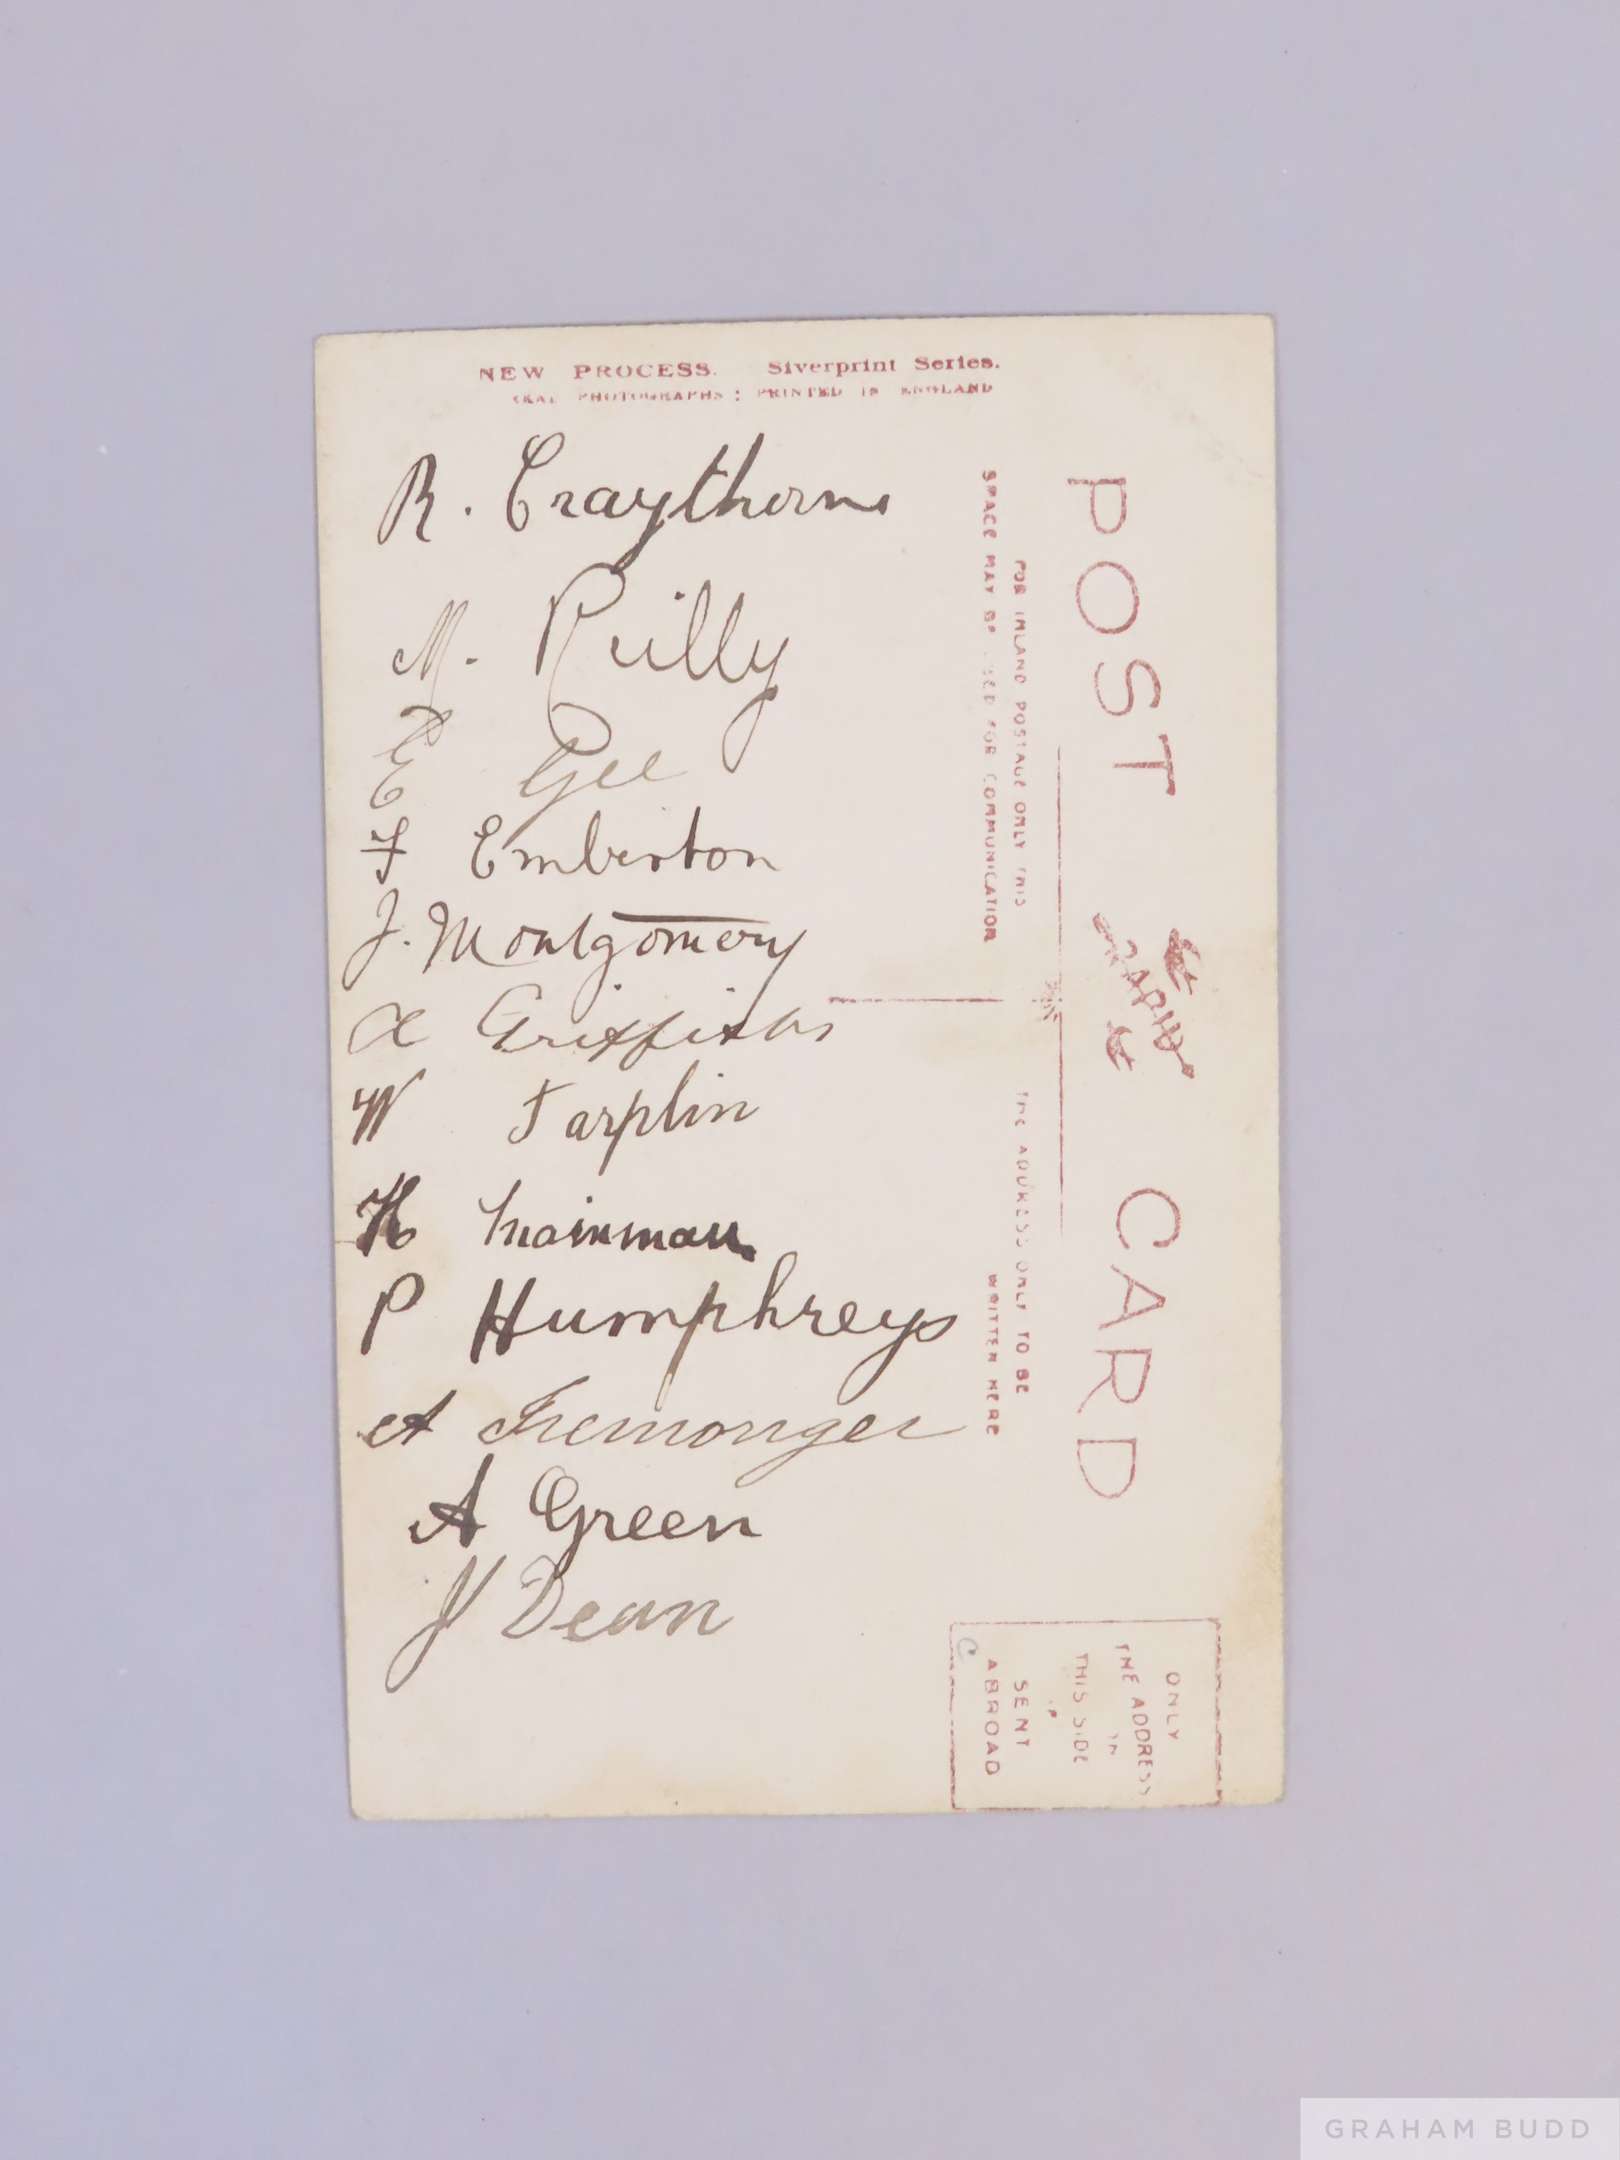 NEW PROCESS. Siverprint Series.
REAL PHOTOGRAPHS : PRINTED IN ENGLAND
R. Craythorne
M. Reilly
E Gee
F Emberton
J. Montgomery
A Griffiths
W Tarplin
H Mainman
P Humphreys
A Iremonger
A Green
J Dean
POST CARD
FOR INLAND POSTAGE ONLY THIS
SPACE MAY BE USED FOR COMMUNICATION
THE ADDRESS ONLY TO BE
WRITTEN HERE
ONLY
THE ADDRESS
ON
THIS SIDE
IF
SENT
ABROAD
GRAHAM BUDD